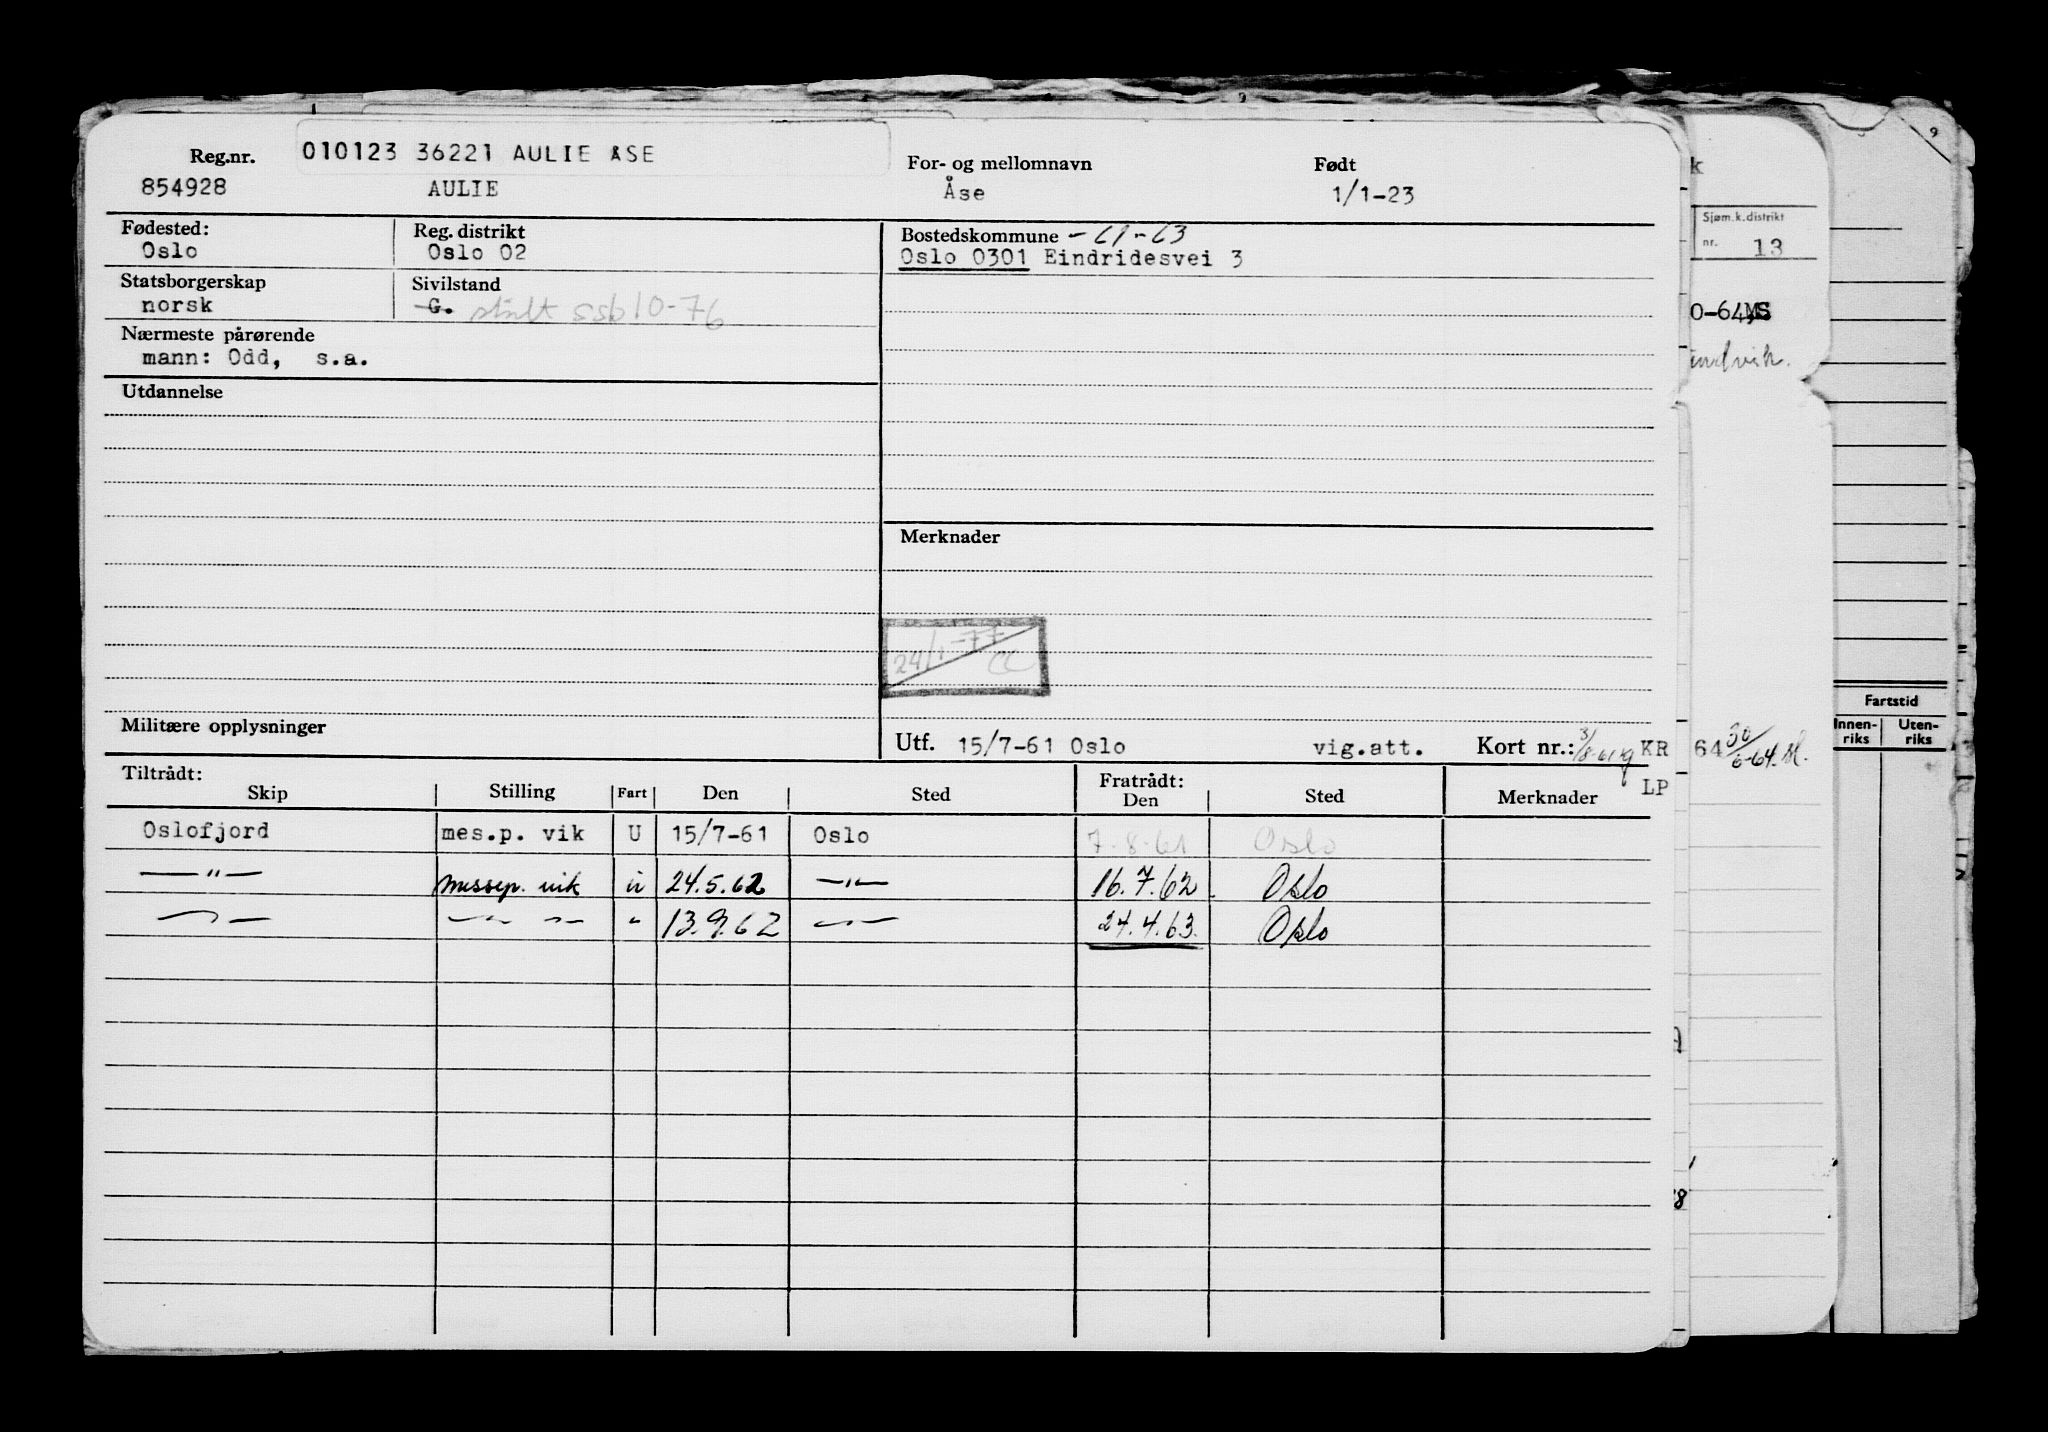 Reg.nr. 010123 36221 AULIE ÅSE For- og mellomnavn Født
854928 AULIE Åse 1/1-23
Fødested: Reg. distrikt Bostedskommune -61-63
Oslo Oslo 02 Oslo 0301 Eindridesvei 3
Statsborgerskap Sivilstand
norsk G. ssb 10-76
Nærmeste pårørende
mann: Odd, s.a.
Utdannelse
Merknader
24/1-77
CC
Militære opplysninger
Utf. 15/7-61 Oslo vig.att. Kort nr.: 3/8-61 KR
LP
Tiltrådt: Fratrådt:
Skip Stilling Fart Den Sted Den Sted Merknader
Oslofjord mes.p. vik U 15/7-61 Oslo 7.8.61 Oslo
—"— messep. vik u 24.5.62 —"— 16.7.62 Oslo
—"— —"— —"— " 13.9.62 —"— 24.4.63. Oslo
k
Sjøm.k.distrikt
nr. 13
0-64 MS
indvik.
64 30/6-64.
9
Fartstid
Innen-
riks
Uten-
riks
8